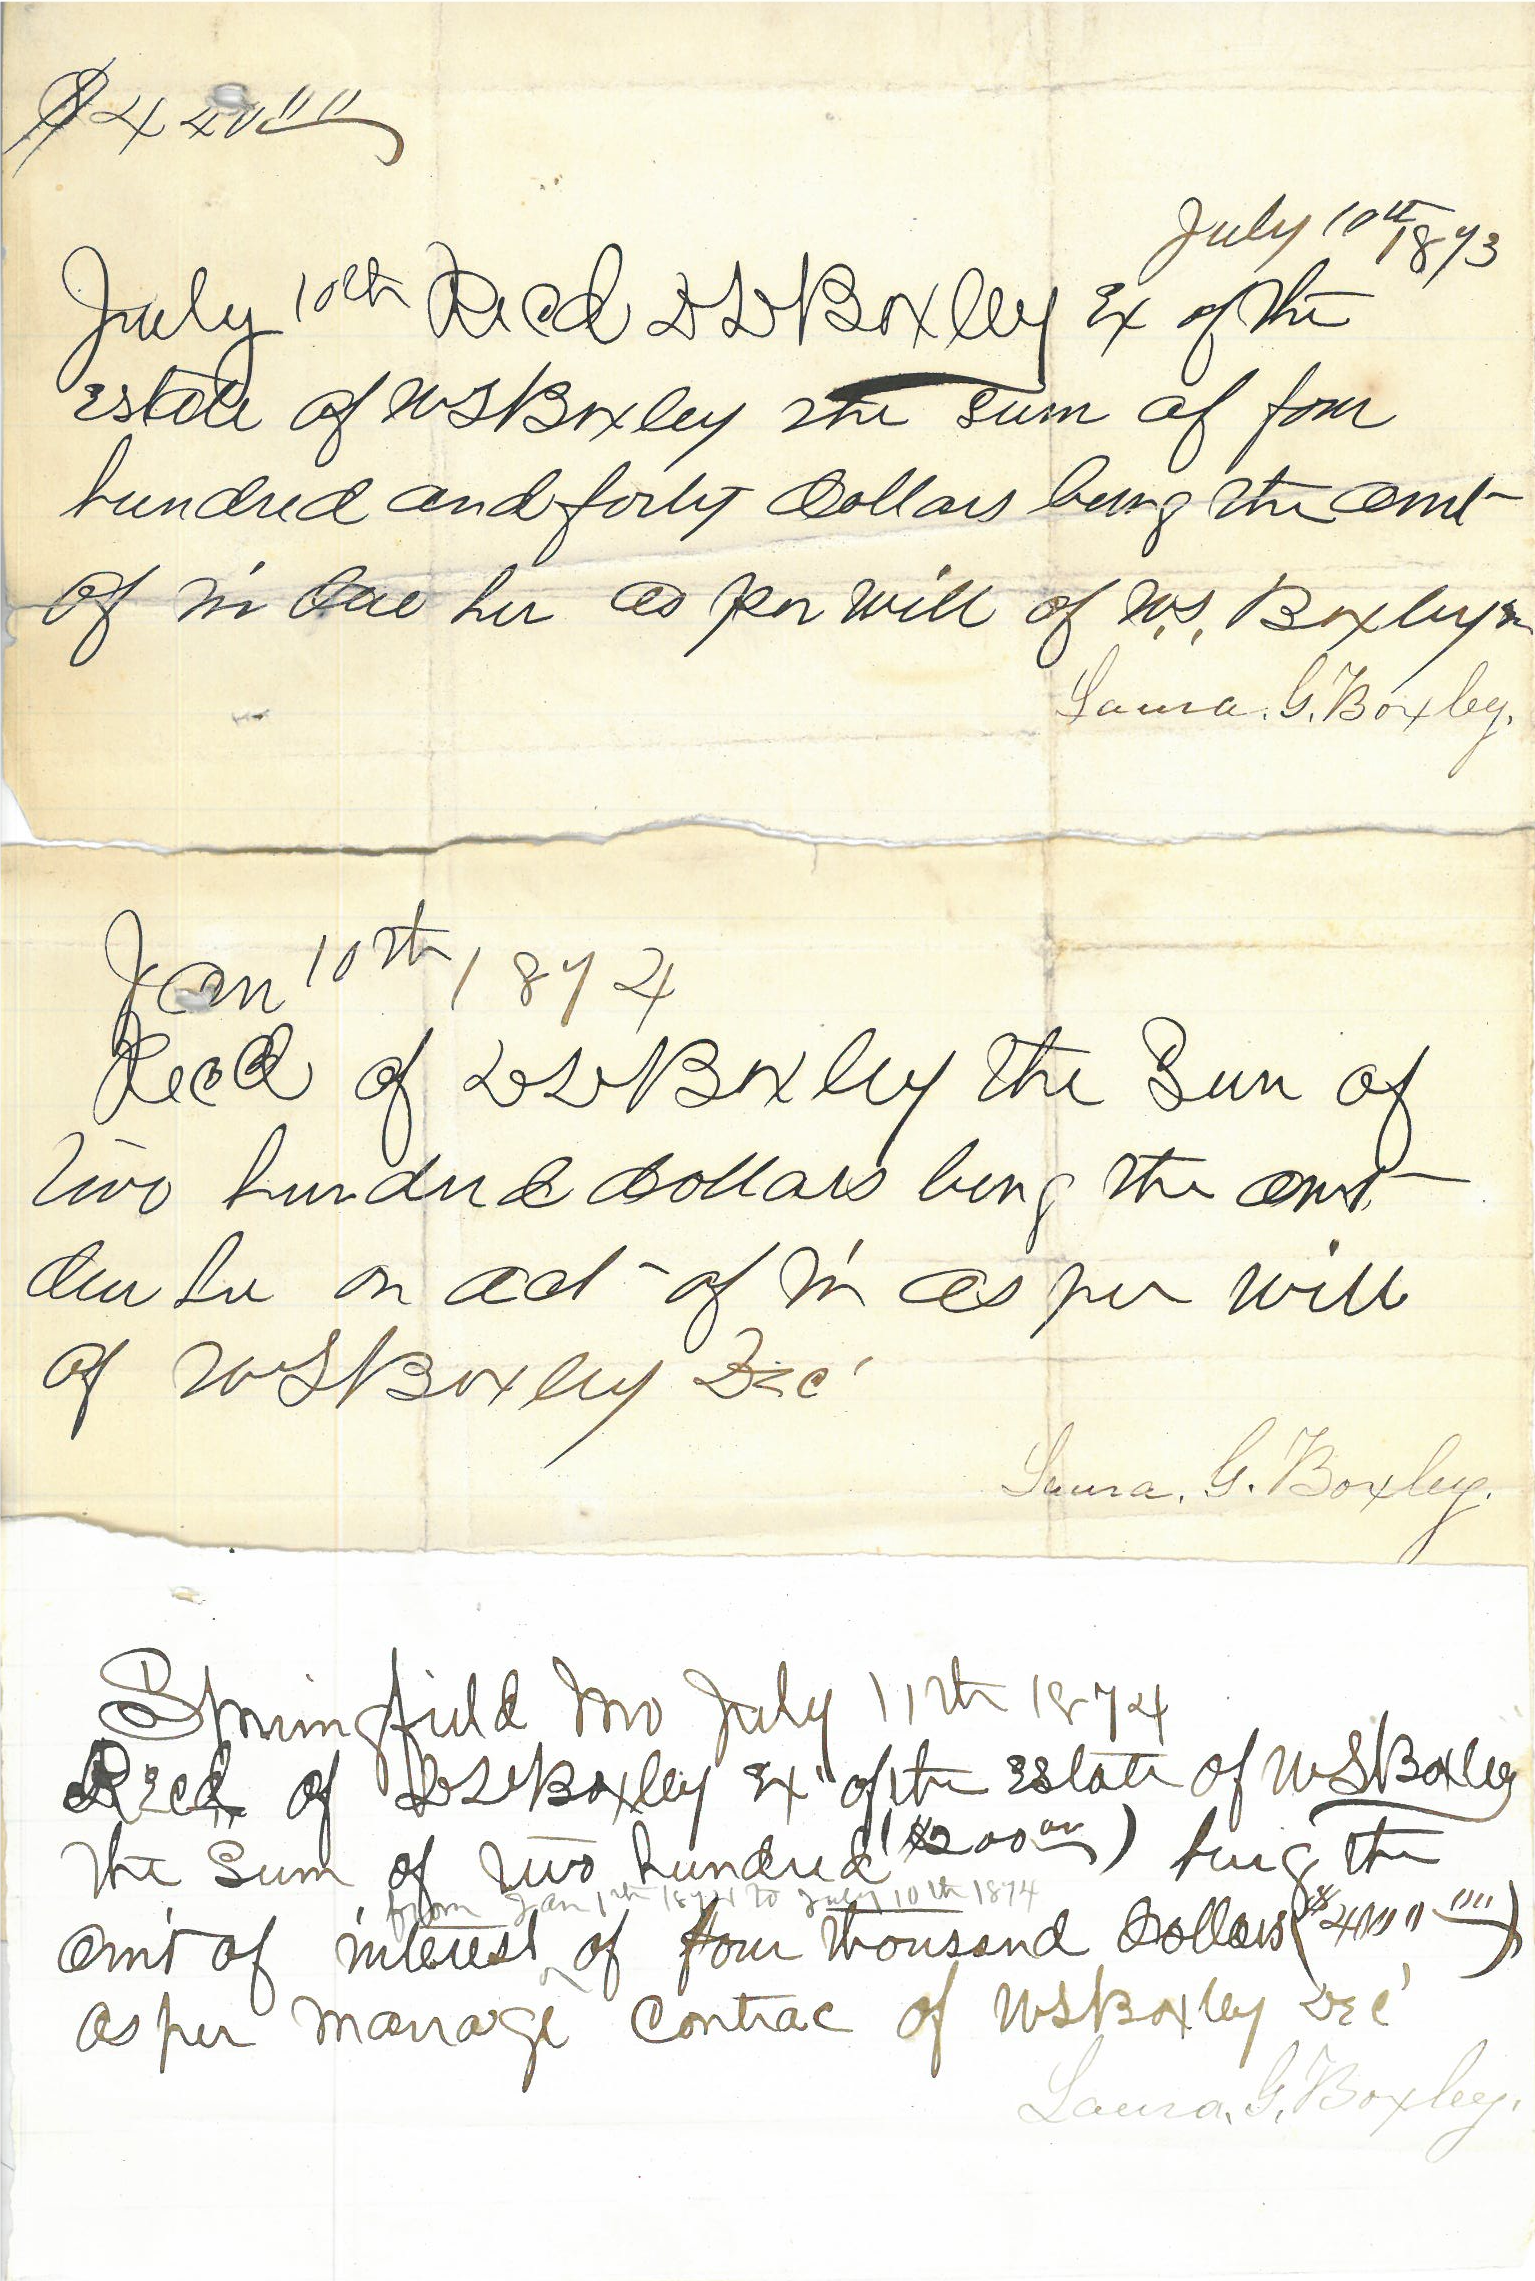 $440.00
July 10th 1873
July 10th Recd D D Boxley Ex of the
Estate of W S Boxley the sum of four
hundred and forty dollars being the amt
of in due her as per will of W.S. Boxley
Laura. G. Boxley.
Jan 10th 1874
Recd of D D Boxley the Sum of
Two hundred dollars being the amt
due her on act of in as per will
of W S Boxley Dec'
Laura. G. Boxley.
Springfield Mo July 11th 1874
Recd of D D Boxley Ex of the Estate of W S Boxley
the Sum of two hundred ($200 00) being the
from Jan 1th 1874 to July 10th 1874
amt of interest of four thousand dollars ($4000 00)
as per marrage contrac of W S Boxley Dec'
Laura. G. Boxley.